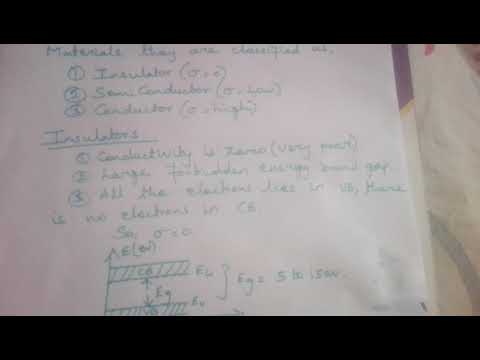 Materials they are classified as,
① Insulator (σ=0)
② SemiConductor (σ, Low)
③ Conductor (σ, high)
Insulators
① Conductivity is zero (very poor)
② Large forbidden energy band gap
③ All the electrons lies in VB, there
is no electrons in CB.
So, σ=0.
E(ev)
CB
Eg
Ev
Eg = 5 to 15ev.